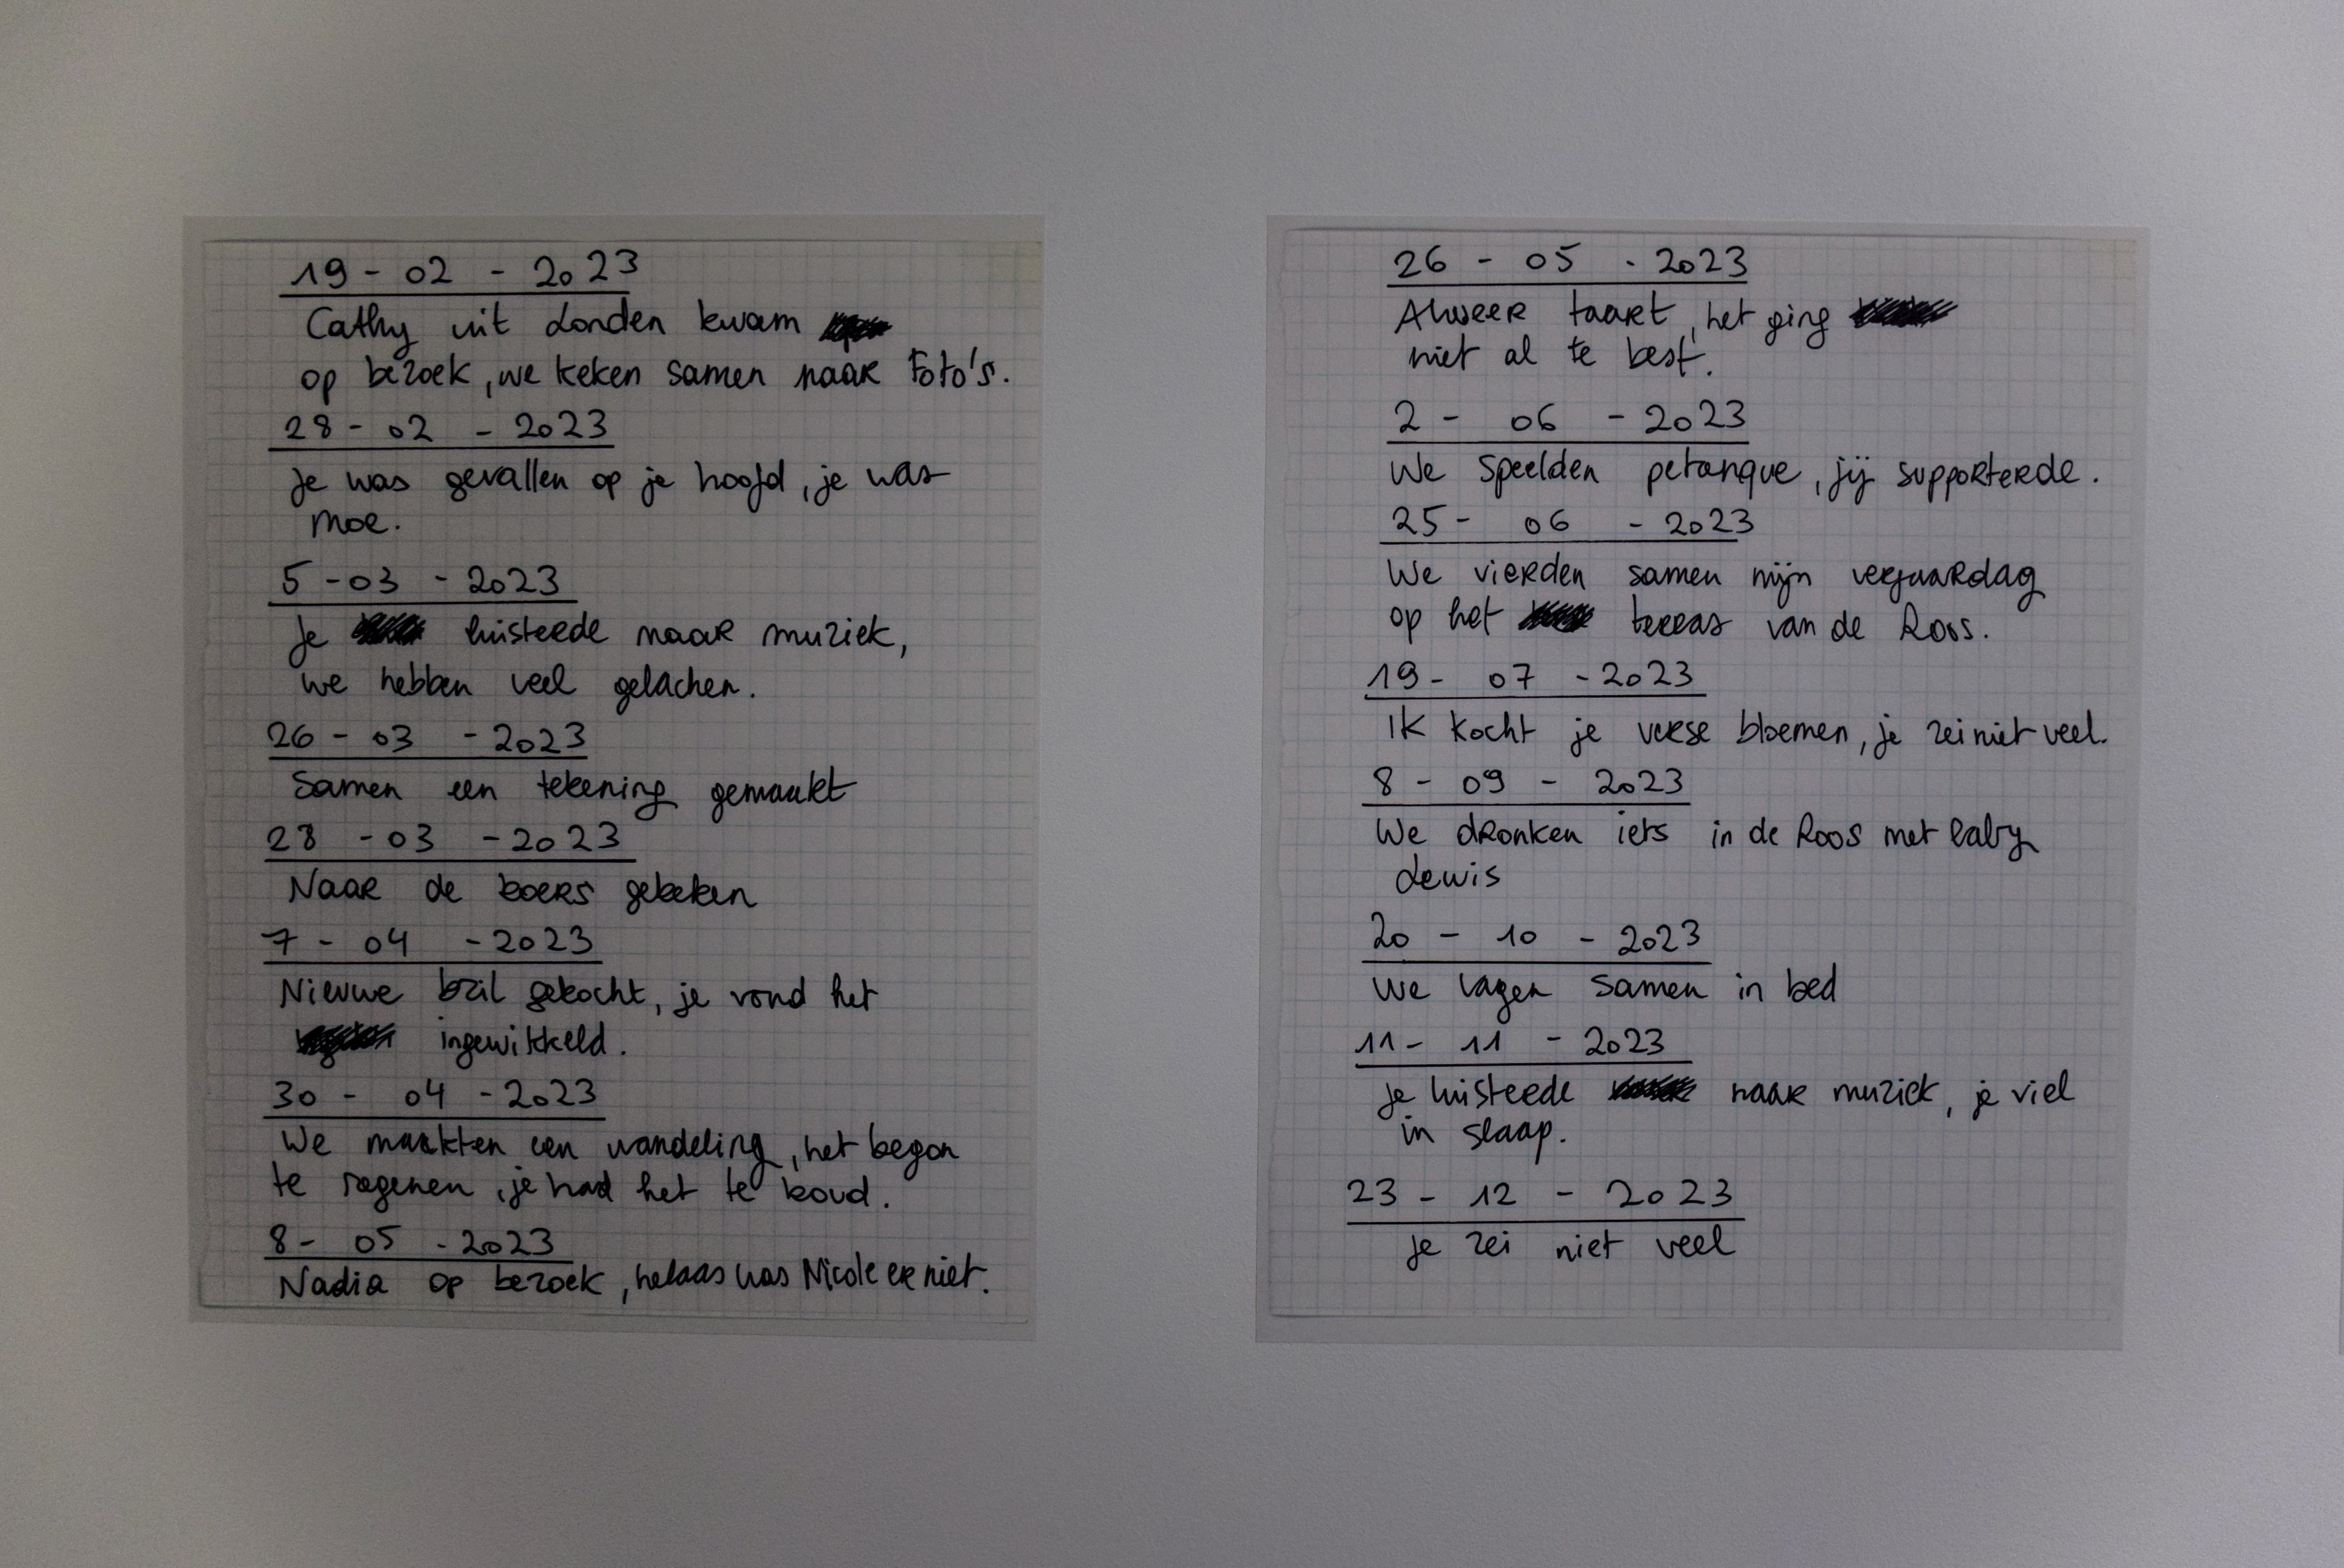 19 - 02 - 2023
Cathy uit Londen kwam
op bezoek, we keken samen naar Foto's.
28 - 02 - 2023
Je was gevallen op je hoofd, je was
moe.
5 - 03 - 2023
Je luisterde naar muziek,
we hebben veel gelachen.
26 - 03 - 2023
Samen een tekening gemaakt
28 - 03 - 2023
Naar de koers gekeken
7 - 04 - 2023
Nieuwe bril gekocht, je vond het
ingewikkeld.
30 - 04 - 2023
We maakten een wandeling, het begon
te regenen, je had het te koud.
8 - 05 - 2023
Nadia op bezoek, helaas was Nicole er niet.
26 - 05 - 2023
Alweer taart, het ging
niet al te best.
2 - 06 - 2023
We speelden petanque, jij supporterde.
25 - 06 - 2023
We vierden samen mijn verjaardag
op het terras van de Roos.
19 - 07 - 2023
Ik kocht je verse bloemen, je zei niet veel.
8 - 09 - 2023
We dronken iets in de Roos met baby
Lewis
20 - 10 - 2023
We lagen samen in bed
11 - 11 - 2023
Je luisterde naar muziek, je viel
in slaap.
23 - 12 - 2023
Je zei niet veel